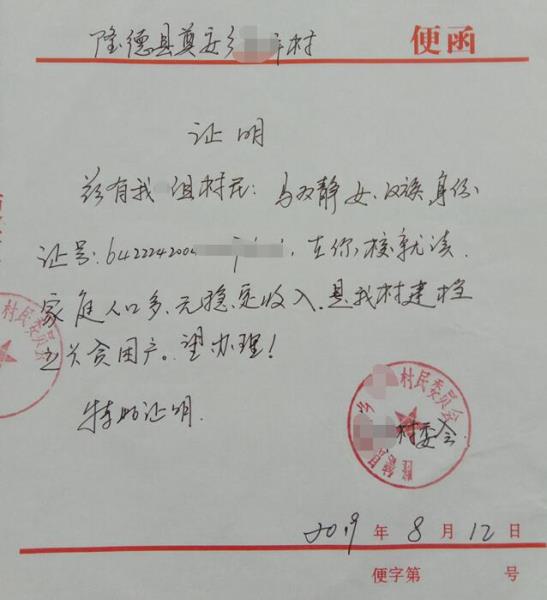 隆德县奠安乡 村 便函
证明
兹有我 组村民:马双静 女、汉族 身份
证号:6422242004 ,在你校就读.
家庭人口多、无稳定收入,是我村建档
立卡贫困户。望办理!
特此证明.
村民委员会
村民委员会
隆德县 乡
村委会
2019年8月12日
便字第 号